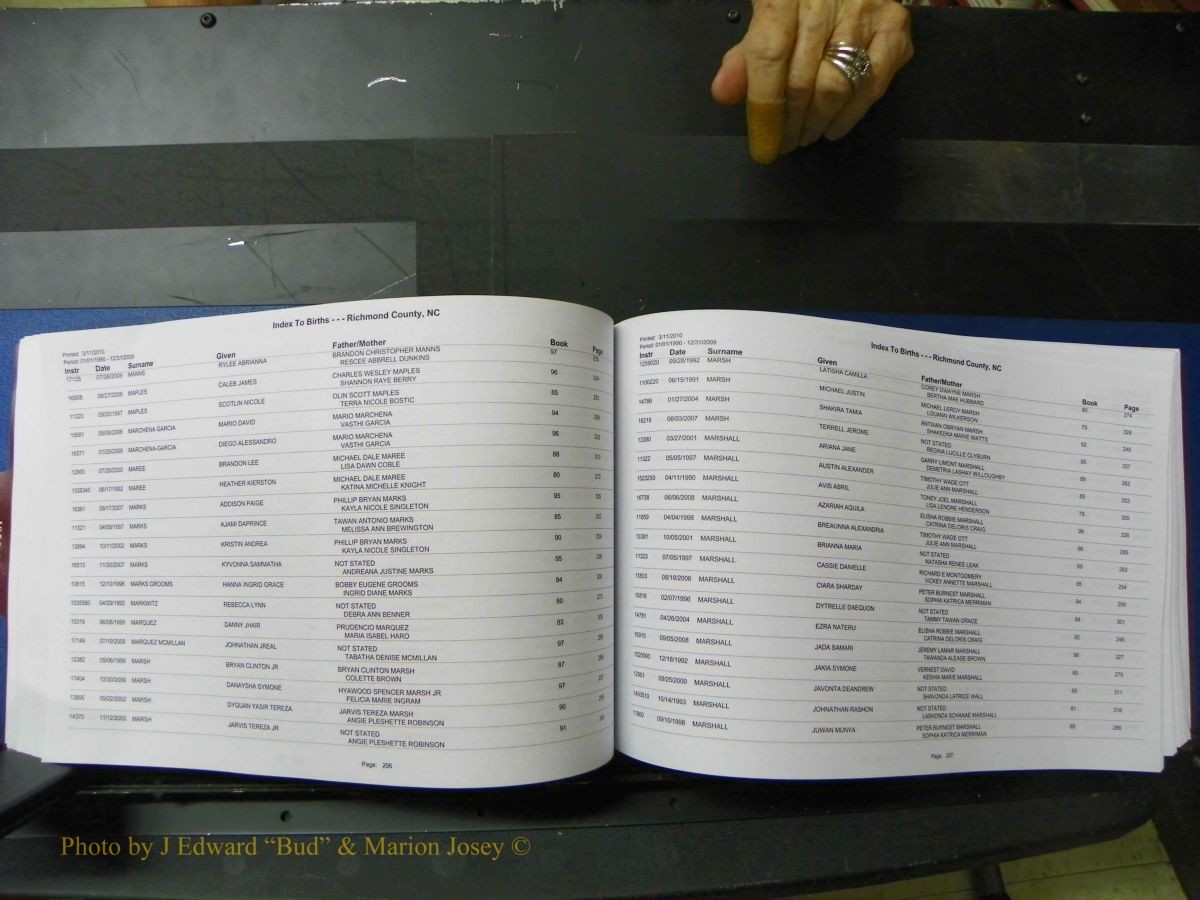 Index To Births - - - Richmond County, NC
Printed: 3/11/2010
Period: 01/01/1990 - 12/31/2009
Instr Date Surname Given Father/Mother Book Page
17135 07/08/2008 MANNS RYLEE ABRIANNA BRANDON CHRISTOPHER MANNS 97
RESCEE ABBRELL DUNKINS
16908 06/27/2008 MAPLES CALEB JAMES CHARLES WESLEY MAPLES 96
SHANNON RAYE BERRY
11320 09/20/1997 MAPLES SCOTLIN NICOLE OLIN SCOTT MAPLES 85
TERRA NICOLE BOSTIC
MARCHENA GARCIA MARIO DAVID MARIO MARCHENA 94
VASTHI GARCIA
16571 01/29/2008 MARCHENA-GARCIA DIEGO ALESSANDRO MARIO MARCHENA 96
VASTHI GARCIA
12900 07/26/2000 MAREE BRANDON LEE MICHAEL DALE MAREE 88
LISA DAWN COBLE
06/17/1992 MAREE HEATHER KIERSTON MICHAEL DALE MAREE 80
KATINA MICHELLE KNIGHT
16381 06/17/2007 MARKS ADDISON PAIGE PHILLIP BRYAN MARKS 95
KAYLA NICOLE SINGLETON
11321 04/08/1997 MARKS AJAMI DAPRINCE TAWAN ANTONIO MARKS 85
MELISSA ANN BREWINGTON
13894 10/11/2002 MARKS KRISTIN ANDREA PHILLIP BRYAN MARKS 90
KAYLA NICOLE SINGLETON
16513 11/30/2007 MARKS KYVONNA SAMMATHA NOT STATED 95
ANDREANA JUSTINE MARKS
12/10/1996 MARKS GROOMS HANNA INGRID GRACE BOBBY EUGENE GROOMS 84
INGRID DIANE MARKS
1035580 04/29/1992 MARKWITZ REBECCA LYNN NOT STATED 80
DEBRA ANN BENNER
10319 06/06/1995 MARQUEZ DANNY JHAIR PRUDENCIO MARQUEZ 83
MARIA ISABEL HARO
17149 07/19/2009 MARQUEZ MCMILLAN JOHNATHAN JREAL NOT STATED 97
TABATHA DENISE MCMILLAN
12382 05/06/1999 MARSH BRYAN CLINTON JR BRYAN CLINTON MARSH 87
COLETTE BROWN
17404 12/30/2009 MARSH DANAYSHA SYMONE HYAWOOD SPENCER MARSH JR 97
FELICIA MARIE INGRAM
13895 09/22/2002 MARSH DYQUAN YASIR TEREZA JARVIS TEREZA MARSH 90
ANGIE PLESHETTE ROBINSON
14370 11/12/2003 MARSH JARVIS TEREZA JR NOT STATED 91
ANGIE PLESHETTE ROBINSON
Page: 296
Index To Births - - - Richmond County, NC
Printed: 3/11/2010
Period: 01/01/1990 - 12/31/2009
Instr Date Surname Given Father/Mother Book Page
1259020 09/28/1992 MARSH LATISHA CAMILLA COREY DWAYNE MARSH 274
BERTHA MAE HUBBARD
1100220 06/15/1991 MARSH MICHAEL JUSTIN MICHAEL LEROY MARSH 79 328
LOUANN WILKERSON
14786 01/27/2004 MARSH SHAKIRA TAMIA ANTWAN OBRYAN MARSH 92
SHAKEEKA MARIE WATTS
16219 06/03/2007 MARSH TERRELL JEROME NOT STATED 95 337
REGINA LUCILLE CLYBURN
13380 03/27/2001 MARSHALL ARIANA JANE GARRY LIMONT MARSHALL 89 262
DEMETRIA LASHAY WILLOUGHBY
11322 05/05/1997 MARSHALL AUSTIN ALEXANDER TIMOTHY WADE OTT 85 253
JULIE ANN MARSHALL
1523250 04/11/1990 MARSHALL AVIS ABRIL TONEY JOEL MARSHALL 78 305
LISA LENORE HENDERSON
16738 06/06/2008 MARSHALL AZARIAH AQUILA ELISHA ROBBIE MARSHALL 96
CATRINA DELORIS CRAIG
11859 04/04/1998 MARSHALL BREAUNNA ALEXANDRIA TIMOTHY WADE OTT 86 285
JULIE ANN MARSHALL
13381 10/05/2001 MARSHALL BRIANNA MARIA NOT STATED 89 263
NATASHA RENEE LEAK
11323 07/05/1997 MARSHALL CASSIE DANIELLE RICHARD E MONTGOMERY 85 254
VICKEY ANNETTE MARSHALL
15803 08/18/2006 MARSHALL CIARA SHARDAY PETER BURNEST MARSHALL 94 259
SOPHIA KATRICA MERRIMAN
10816 02/07/1996 MARSHALL DYTRELLE DAEQUON NOT STATED 84 301
TAMMY TAWAN GRACE
14781 04/26/2004 MARSHALL EZRA NATERU ELISHA ROBBIE MARSHALL 92 246
CATRINA DELORIS CRAIG
16915 09/05/2008 MARSHALL JADA SAMARI JEREMY LAMAR MARSHALL 96 327
TAWANDA ALEASE BROWN
12/18/1992 MARSHALL JAKIA SYMONE VERNEST DAVID 80 275
KESHIA MARIE MARSHALL
12901 09/25/2000 MARSHALL JAVONTA DEANDREW NOT STATED 88 311
SHAVONDA LATRICE WALL
1400510 10/14/1993 MARSHALL JOHNATHAN RASHON NOT STATED 81 318
LASHONDA SCHANAE MARSHALL
11860 09/10/1998 MARSHALL JUWAN MUNYA PETER BURNEST MARSHALL 86 286
SOPHIA KATRICA MERRIMAN
Page: 297
Photo by J Edward “Bud” & Marion Josey ©